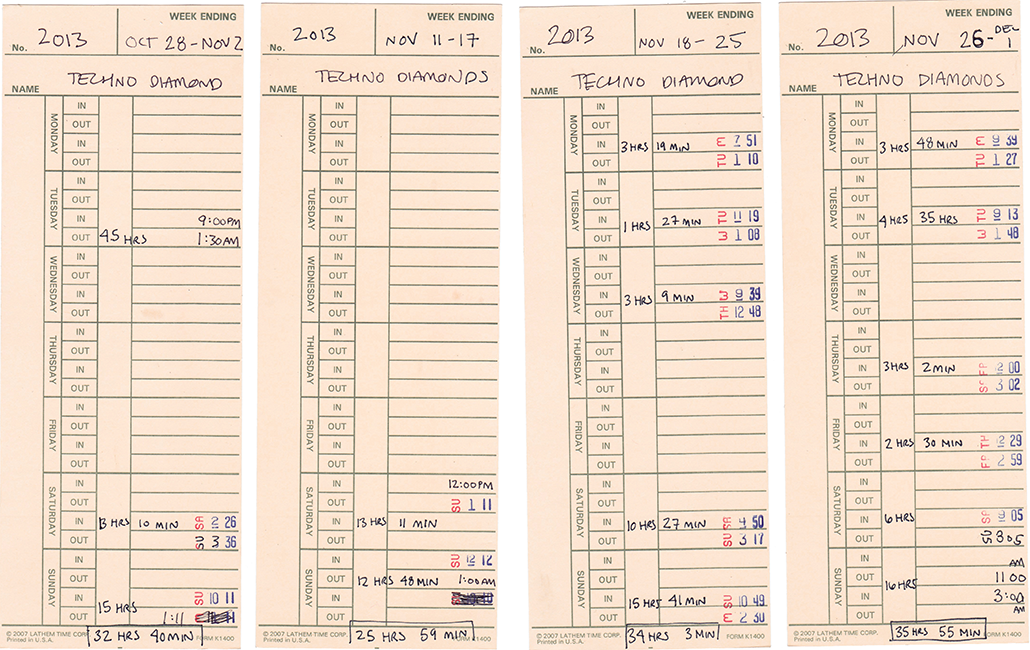 WEEK ENDING
No. 2013 OCT 28-NOV 2
TECHNO DIAMOND
NAME
MONDAY
IN
OUT
IN
OUT
TUESDAY
IN
OUT
IN 9:00PM
OUT 45 HRS 1:30AM
WEDNESDAY
IN
OUT
IN
OUT
THURSDAY
IN
OUT
IN
OUT
FRIDAY
IN
OUT
IN
OUT
SATURDAY
IN
OUT
IN 13 HRS 10 MIN SA 2 26
OUT SU 3 36
SUNDAY
IN
OUT
IN 15 HRS SU 10 11
OUT 1:11
© 2007 LATHEM TIME CORP. FORM K1400
Printed in U.S.A.
32 HRS 40 MIN
WEEK ENDING
No. 2013 NOV 11-17
TECHNO DIAMONDS
NAME
MONDAY
IN
OUT
IN
OUT
TUESDAY
IN
OUT
IN
OUT
WEDNESDAY
IN
OUT
IN
OUT
THURSDAY
IN
OUT
IN
OUT
FRIDAY
IN
OUT
IN
OUT
SATURDAY
IN 12:00PM
OUT SU 1 11
IN 13 HRS 11 MIN
OUT
SUNDAY
IN SU 12 12
OUT 12 HRS 48 MIN 1:00AM
IN
OUT
© 2007 LATHEM TIME CORP. K1400
Printed in U.S.A.
25 HRS 59 MIN
WEEK ENDING
No. 2013 NOV 18-25
TECHNO DIAMOND
NAME
MONDAY
IN
OUT
IN 3 HRS 19 MIN M 7 51
OUT TU 1 10
TUESDAY
IN
OUT
IN 1 HRS 27 MIN TU 11 19
OUT W 1 08
WEDNESDAY
IN
OUT
IN 3 HRS 9 MIN W 9 39
OUT TH 12 48
THURSDAY
IN
OUT
IN
OUT
FRIDAY
IN
OUT
IN
OUT
SATURDAY
IN
OUT
IN 10 HRS 27 MIN SA 4 50
OUT SU 3 17
SUNDAY
IN
OUT
IN 15 HRS 41 MIN SU 10 49
OUT M 2 30
© 2007 LATHEM TIME CORP. FORM K1400
Printed in U.S.A.
34 HRS 3 MIN
WEEK ENDING
No. 2013 NOV 26-DEC 1
TECHNO DIAMONDS
NAME
MONDAY
IN
OUT
IN 3 HRS 48 MIN M 9 39
OUT TU 1 27
TUESDAY
IN
OUT
IN 4 HRS 35 HRS TU 9 13
OUT W 1 48
WEDNESDAY
IN
OUT
IN
OUT
THURSDAY
IN
OUT
IN 3 HRS 2 MIN FR 00
OUT 3 02
FRIDAY
IN
OUT
IN 2 HRS 30 MIN TH 12 29
OUT FR 2 59
SATURDAY
IN
OUT
IN 6 HRS SA 9 05
OUT SU 3:05
SUNDAY
IN AM
OUT 16 HRS 11 00
IN 3:00
OUT AM
© 2007 LATHEM TIME CORP. FORM K1400
Printed in U.S.A.
35 HRS 55 MIN